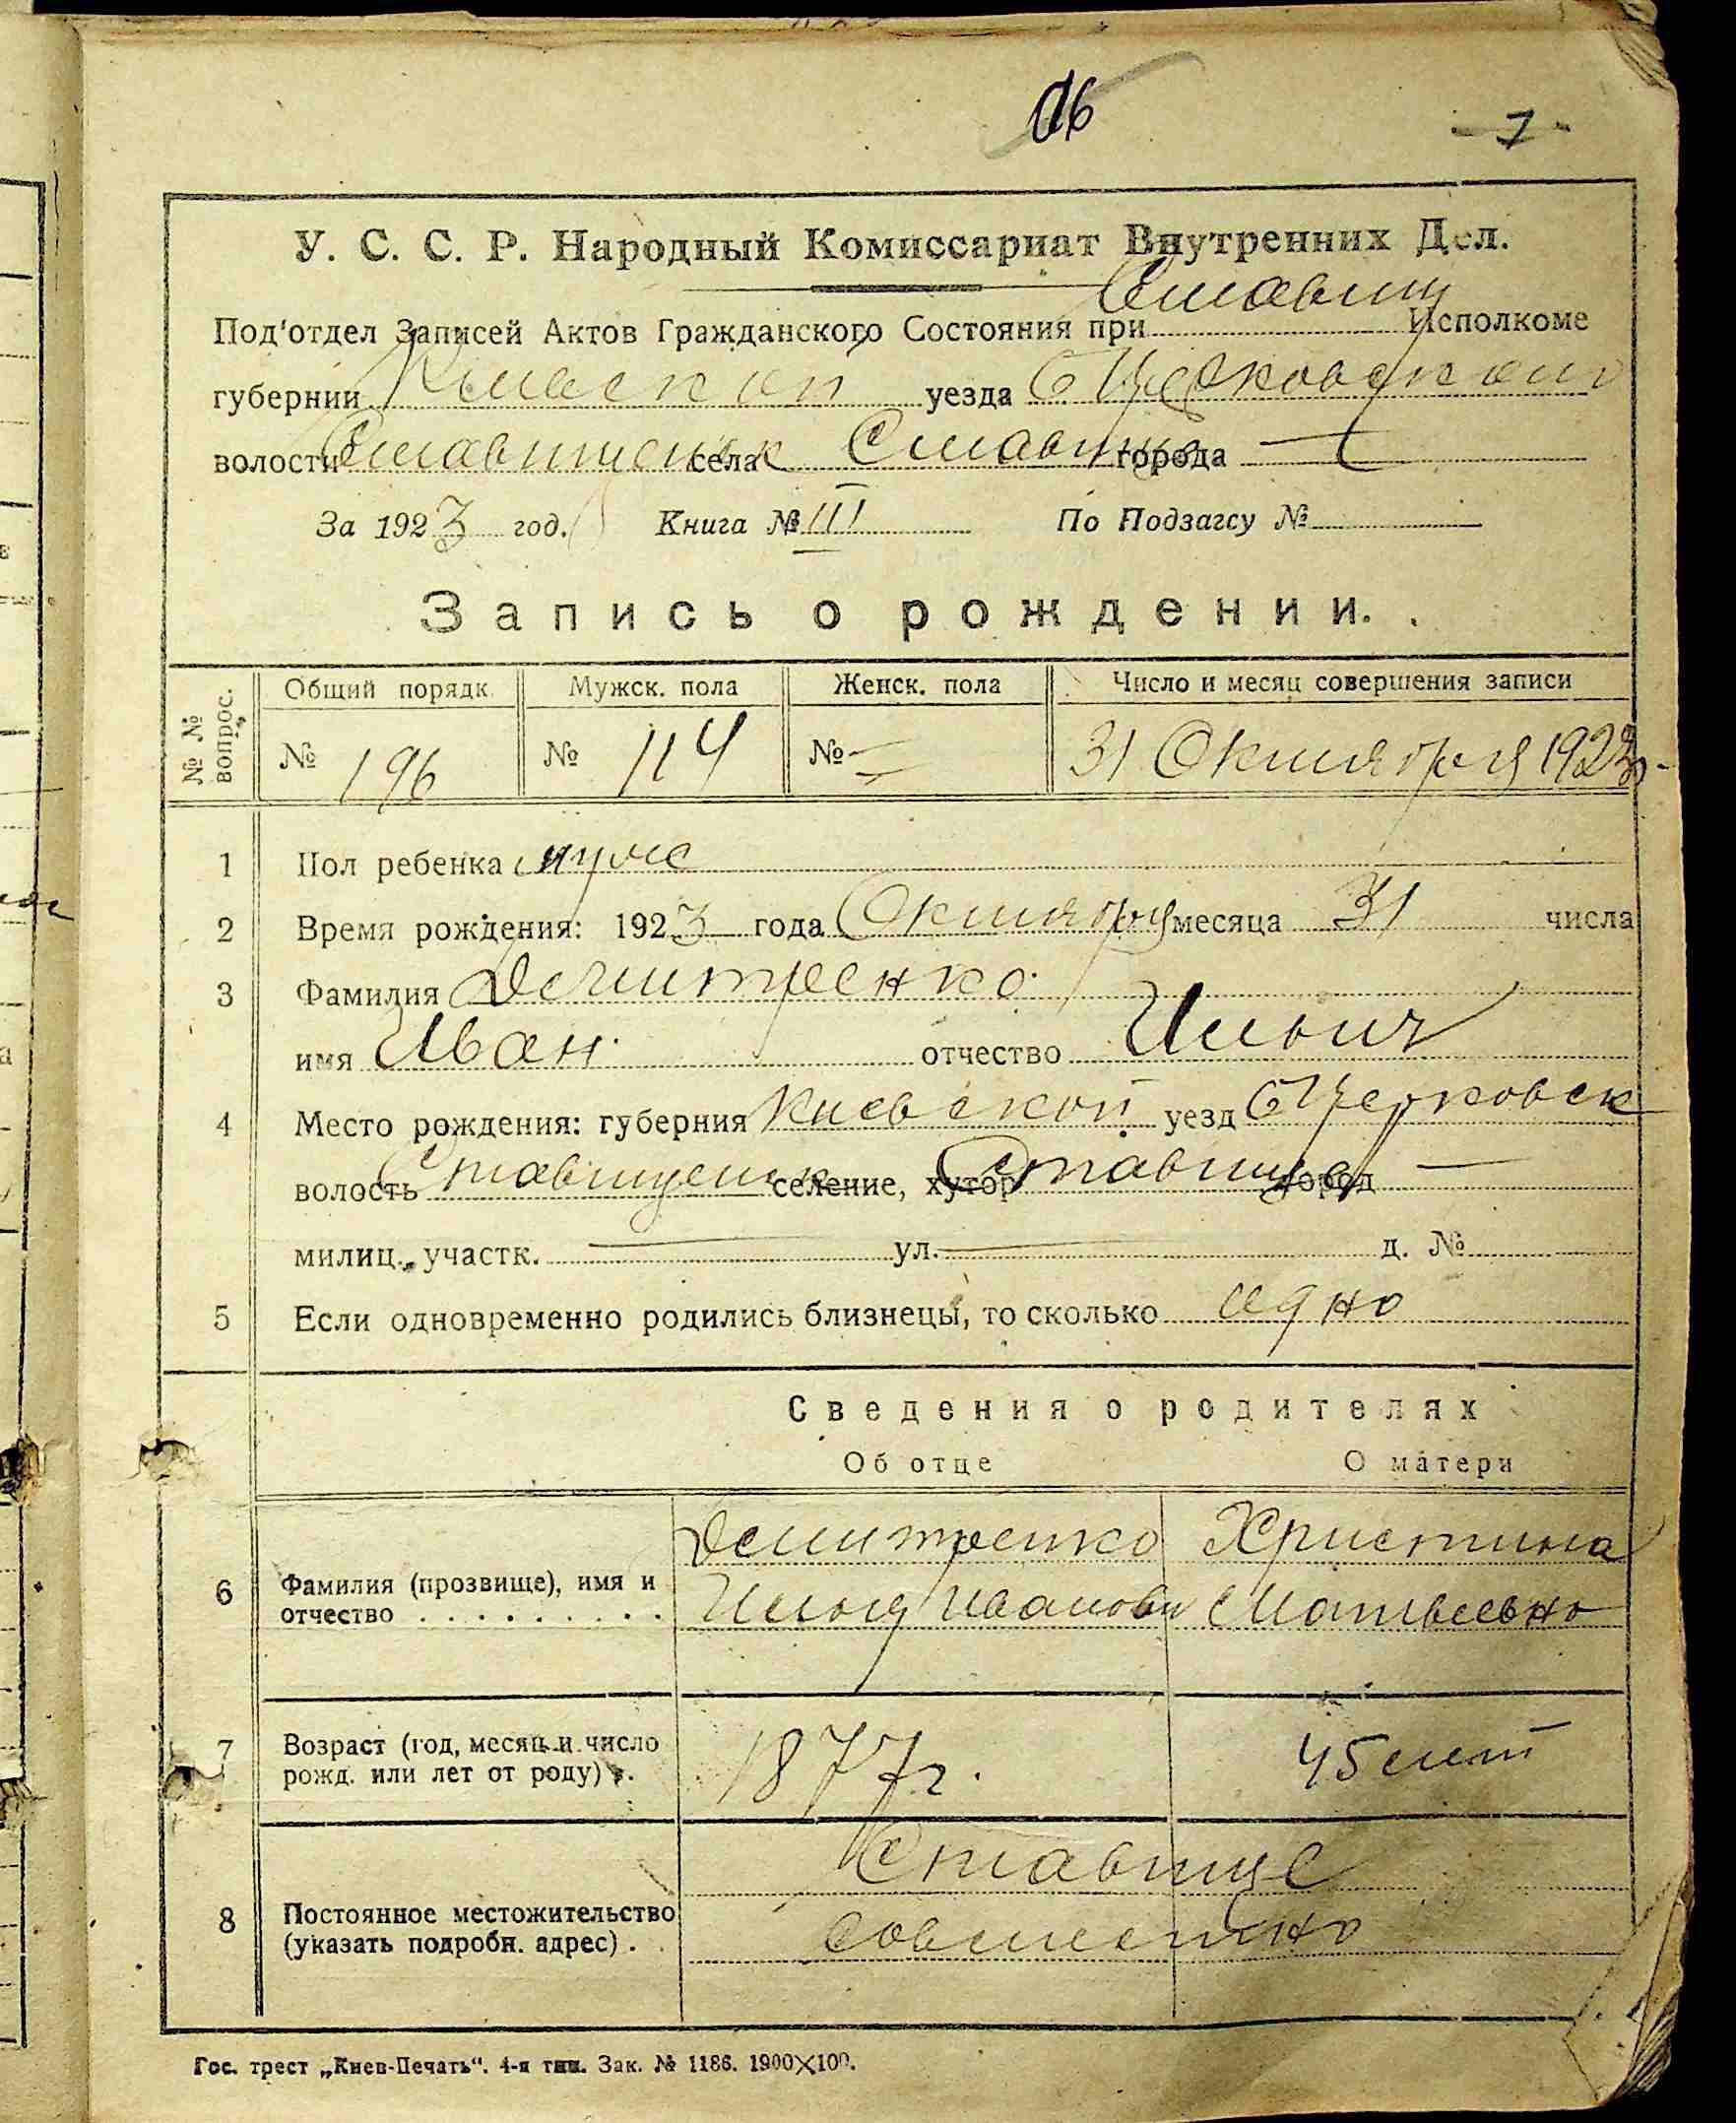 16
7
У. С. С. Р. Народный Комиссариат Внутренних Дел.
Под'отдел Записей Актов Гражданского Состояния при Ставищ Исполкоме
губернии Киевской уезда Б Церковском
волости Ставищенск села Ставище города —
За 1923 год. Книга № III По Подзагсу №
Запись о рождении.
№ № вопрос. Общий порядк. Мужск. пола Женск. пола Число и месяц совершения записи
№ 196 № 114 № — 31 Октября 1923 г.
1 Пол ребенка муж
2 Время рождения: 1923 года Октября месяца 31 числа
3 Фамилия Демитренко
имя Иван отчество Ильич
4 Место рождения: губерния Киевской уезд Б Церковск
волость Ставищенск селение, хутор Ставище город —
милиц. участк. — ул. — д. №
5 Если одновременно родились близнецы, то сколько одно
Сведения о родителях
Об отце О матери
Демитренко Христина
6 Фамилия (прозвище), имя и отчество . . . . . . . . . Илья Иванович Матвеевно
7 Возраст (год, месяц и число рожд. или лет от роду) . 1877 г. 45 лет
Ставище
8 Постоянное местожительство (указать подробн. адрес) . совместно
Гос. трест „Киев-Печать". 4-я тип. Зак. № 1186. 1900×100.